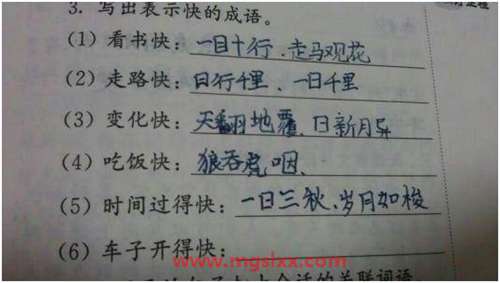 3. 写出表示快的成语。
(1) 看书快：一目十行、走马观花
(2) 走路快：日行千里、一日千里
(3) 变化快：天翻地覆、日新月异
(4) 吃饭快：狼吞虎咽.
(5) 时间过得快：一日三秋、岁月如梭
(6) 车子开得快：
www.mgslxx.com